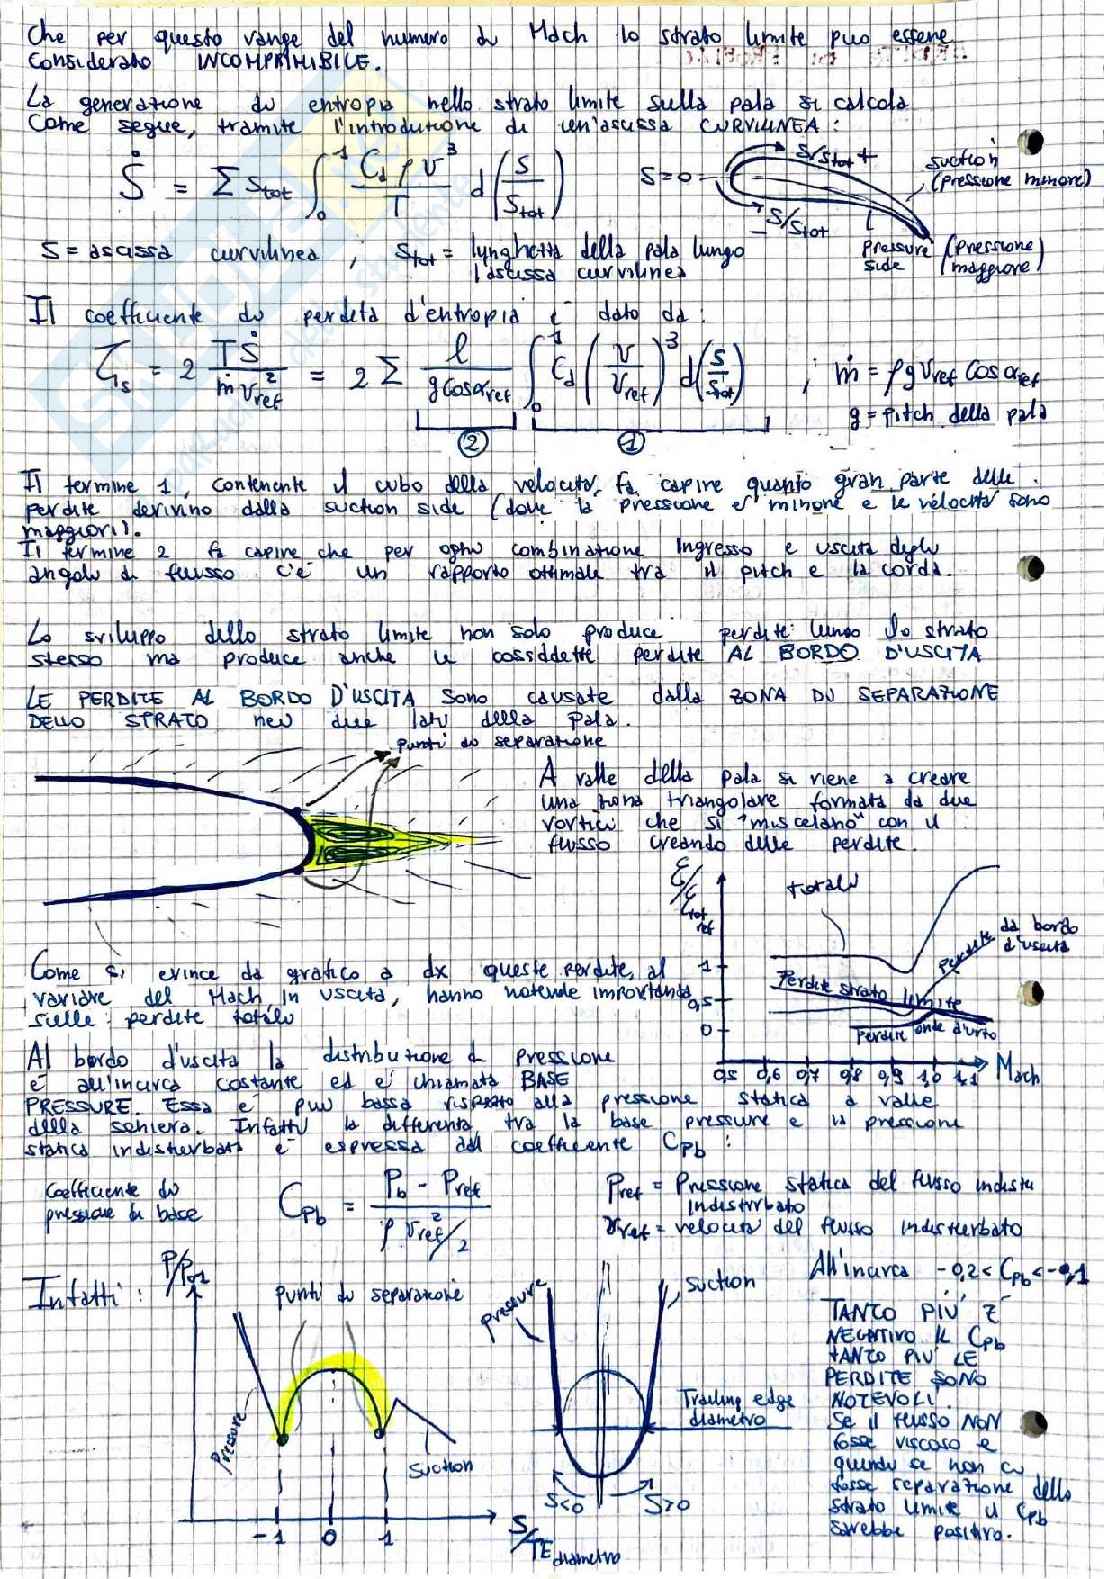 Che per questo range del numero di Mach lo strato limite puo essere
considerato INCOMPRIMIBILE.
La generazione di entropia nello strato limite sulla pala si calcola
come segue, tramite l'introduzione di un'ascissa CURVILINEA:
Ṡ = Σ Stot ∫₀¹ Cd ρ v³ / T d(S/Stot)
S=0
S/Stot +
suction
(pressione minore)
- S/Stot
pressure side (pressione maggiore)
S = ascissa curvilinea ; Stot = lunghezza della pala lungo
l'ascissa curvilinea
Il coefficiente di perdita d'entropia è dato da:
ζs = 2 TṠ / ṁ vref² = 2 Σ l / g cosαref ∫₀¹ Cd (v/vref)³ d(S/Stot) ; ṁ = ρ g vref cosαref
g = pitch della pala
② ①
Il termine 1, contenente il cubo della velocità, fa capire quanto gran parte delle
perdite derivino dalla suction side (dove la pressione e' minore e le velocità sono
maggiori).
Il termine 2 fa capire che per ogni combinazione ingresso e uscita degli
angoli di flusso c'è un rapporto ottimale tra il pitch e la corda.
Lo sviluppo dello strato limite non solo produce perdite lungo lo strato
stesso ma produce anche le cosiddette perdite AL BORDO D'USCITA
LE PERDITE AL BORDO D'USCITA sono causate dalla ZONA DI SEPARAZIONE
DELLO STRATO nei due lati della pala.
punti di separazione
A valle della pala si viene a creare
una zona triangolare formata da due
vortici che si "miscelano" con il
flusso creando delle perdite.
ξ/ξtot ref
totali
Perdite da bordo
d'uscita
1
Perdite strato limite
0,5
0
Perdite onde d'urto
0,5 0,6 0,7 0,8 0,9 1,0 1,1 Mach
Come si evince da grafico a dx queste perdite, al
variare del Mach in uscita, hanno notevole importanza
sulle perdite totali
Al bordo d'uscita la distribuzione di pressione
e' all'incirca costante ed e' chiamata BASE
PRESSURE. Essa e' piu bassa rispetto alla pressione statica a valle
della schiera. Infatti la differenza tra la base pressure e la pressione
statica indisturbata è espressa dal coefficiente CPb :
coefficiente di
pressione di base
CPb = Pb - Pref / ρ vref²/2
Pref = Pressione statica del flusso indistu
indisturbato
vref = velocità del flusso indisturbato
Infatti:
P/P01
punti di separazione
pressure
suction
-1 0 1
S/TE diametro
pressure
suction
Trailing edge
diametro
S<0 S>0
All'incirca -0,2 < CPb < -0,1
TANTO PIU' E'
NEGATIVO IL CPb
TANTO PIU' LE
PERDITE SONO
NOTEVOLI.
Se il flusso NON
fosse viscoso e
quindi se non ci
fosse separazione dello
strato limite il CPb
sarebbe positivo.